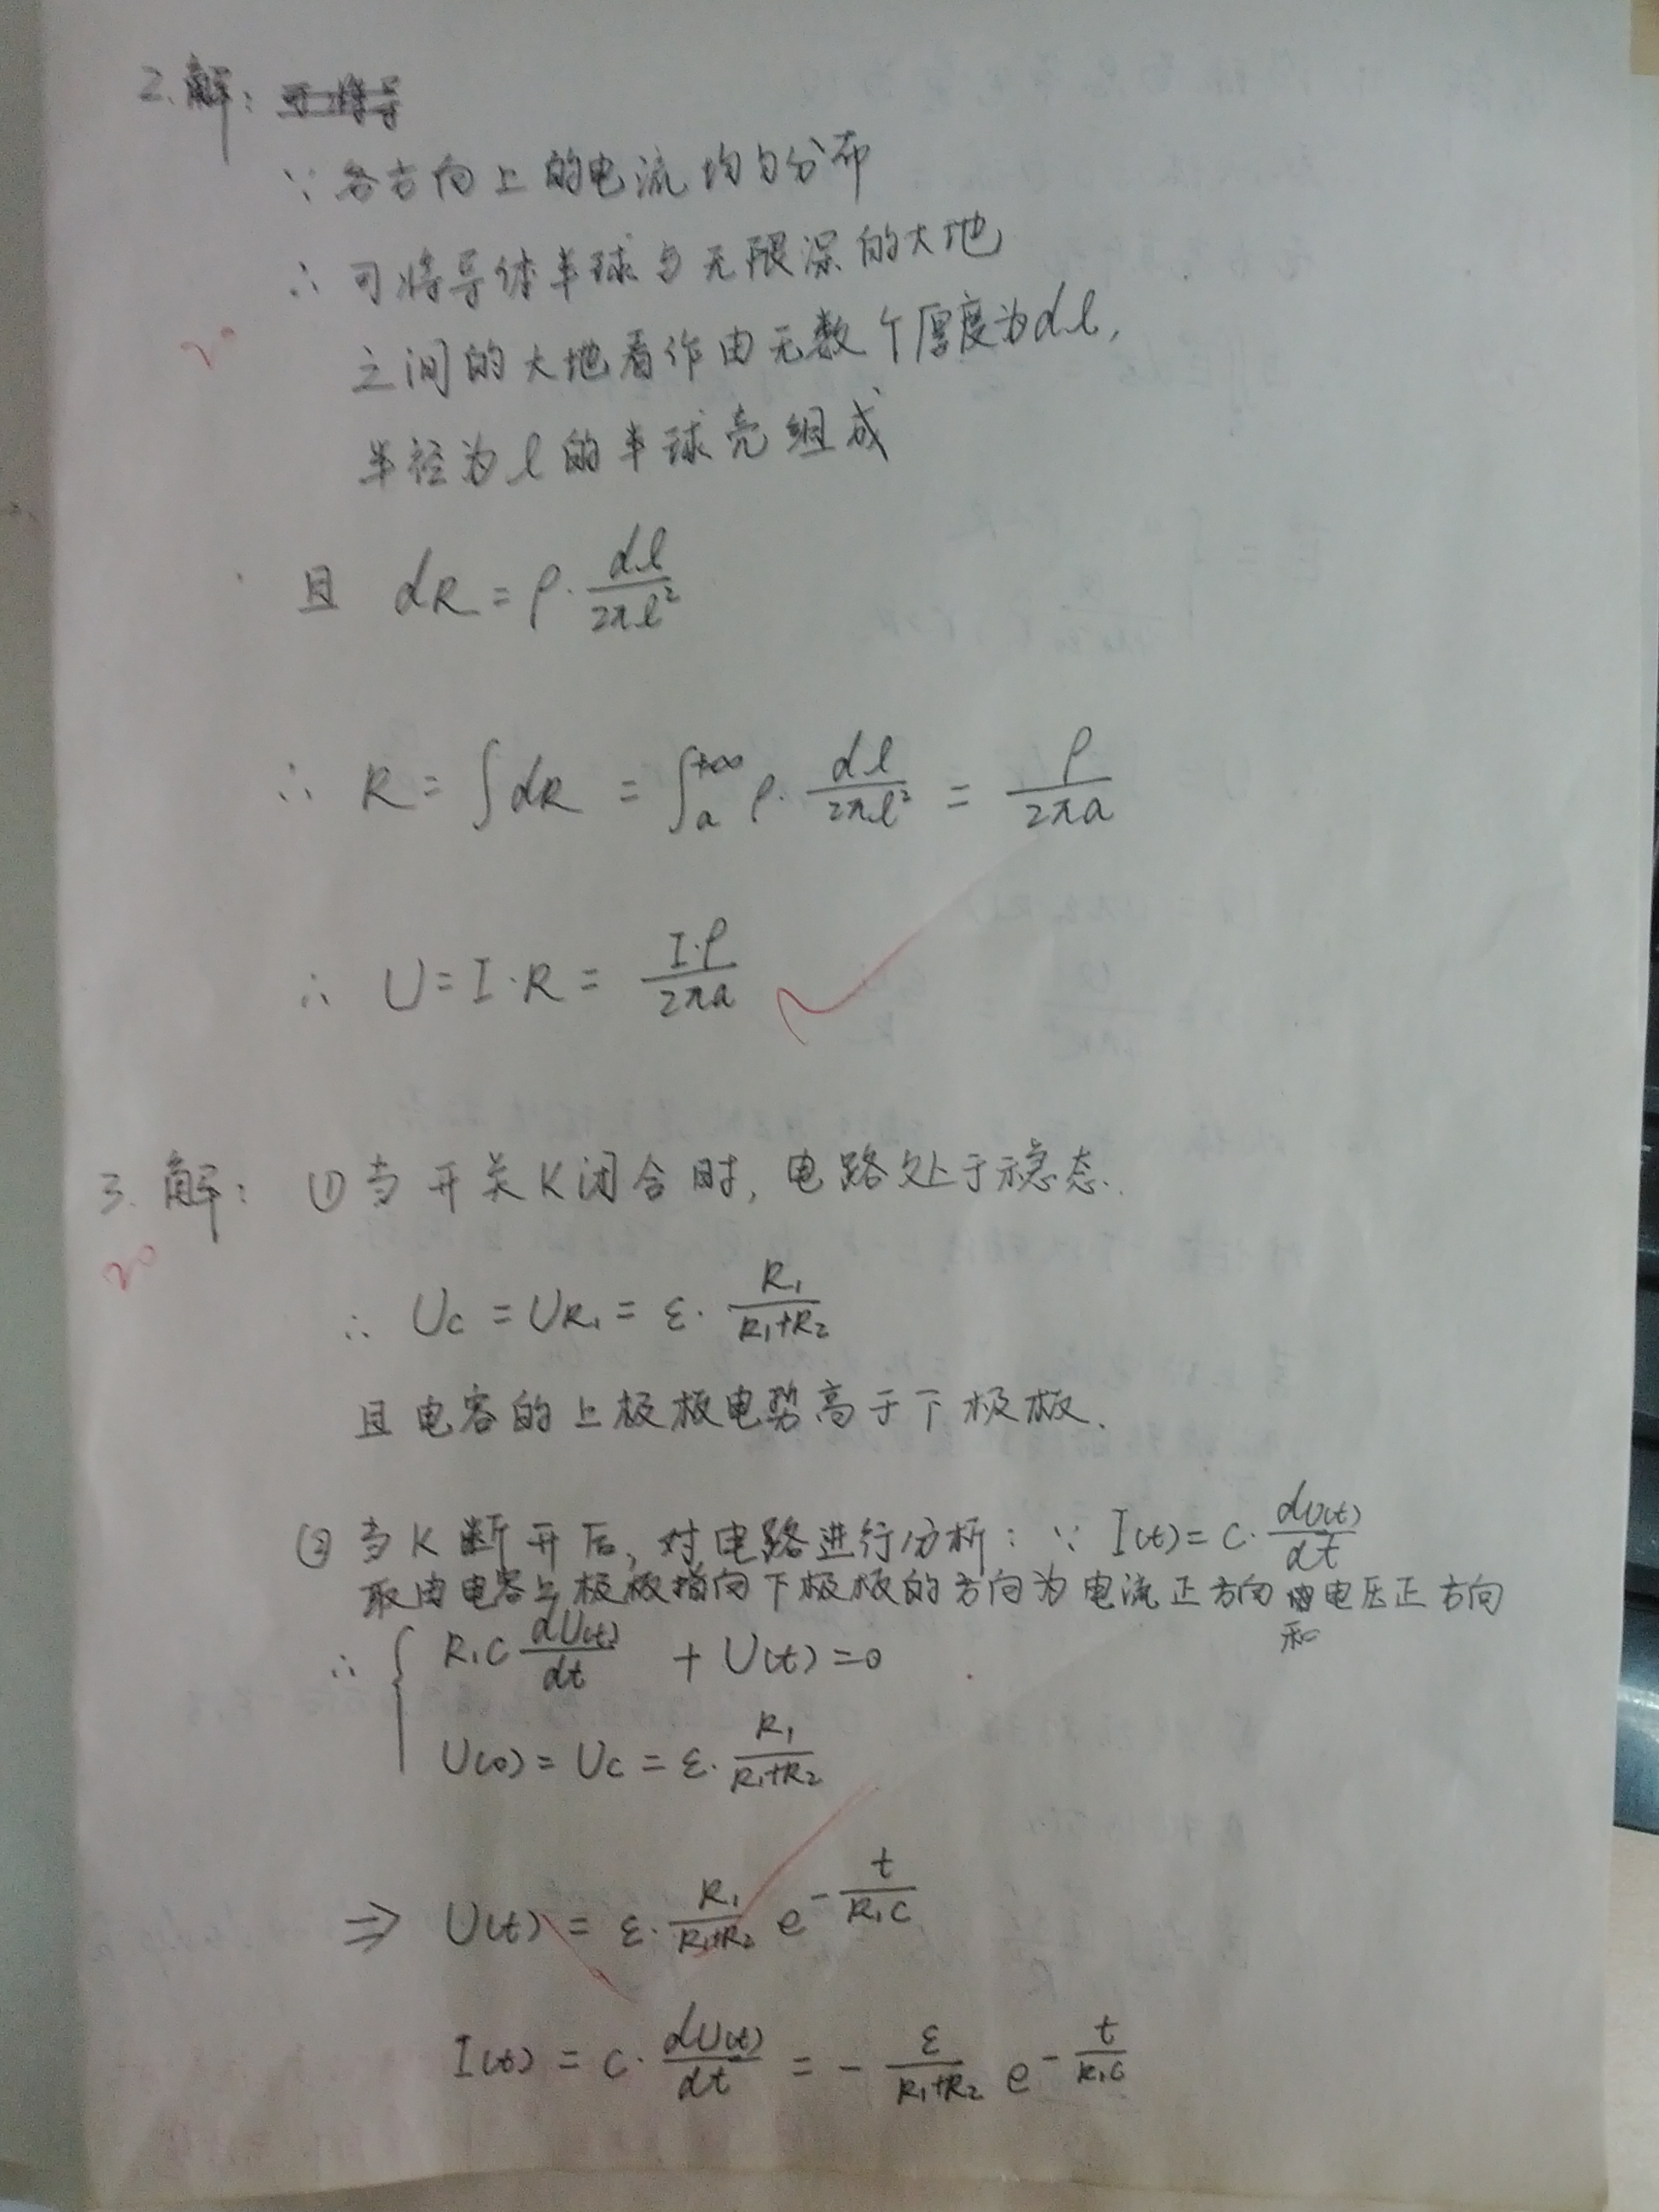 2.解:
∵各方向上的电流均匀分布
∴可将导体半球与无限深的大地
20
之间的大地看作由无数个厚度为dl,
半径为l的半球壳组成
且 dR = ρ·dl/2πl²
∴ R = ∫dR = ∫ₐ^{+∞} ρ·dl/2πl² = ρ/2πa
∴ U = I·R = I·ρ/2πa
3.解: ①当开关K闭合时,电路处于稳态.
20
∴ Uc = UR₁ = ε·R₁/(R₁+R₂)
且电容的上极板电势高于下极板.
②当K断开后,对电路进行分析: ∵ I(t) = C·dU(t)/dt
取由电容上极板指向下极板的方向为电流正方向和电压正方向
∴ { R₁C dU(t)/dt + U(t) = 0
U(0) = Uc = ε·R₁/(R₁+R₂)
⇒ U(t) = ε·R₁/(R₁+R₂) e^{-t/(R₁C)}
I(t) = C·dU(t)/dt = -ε/(R₁+R₂) e^{-t/(R₁C)}